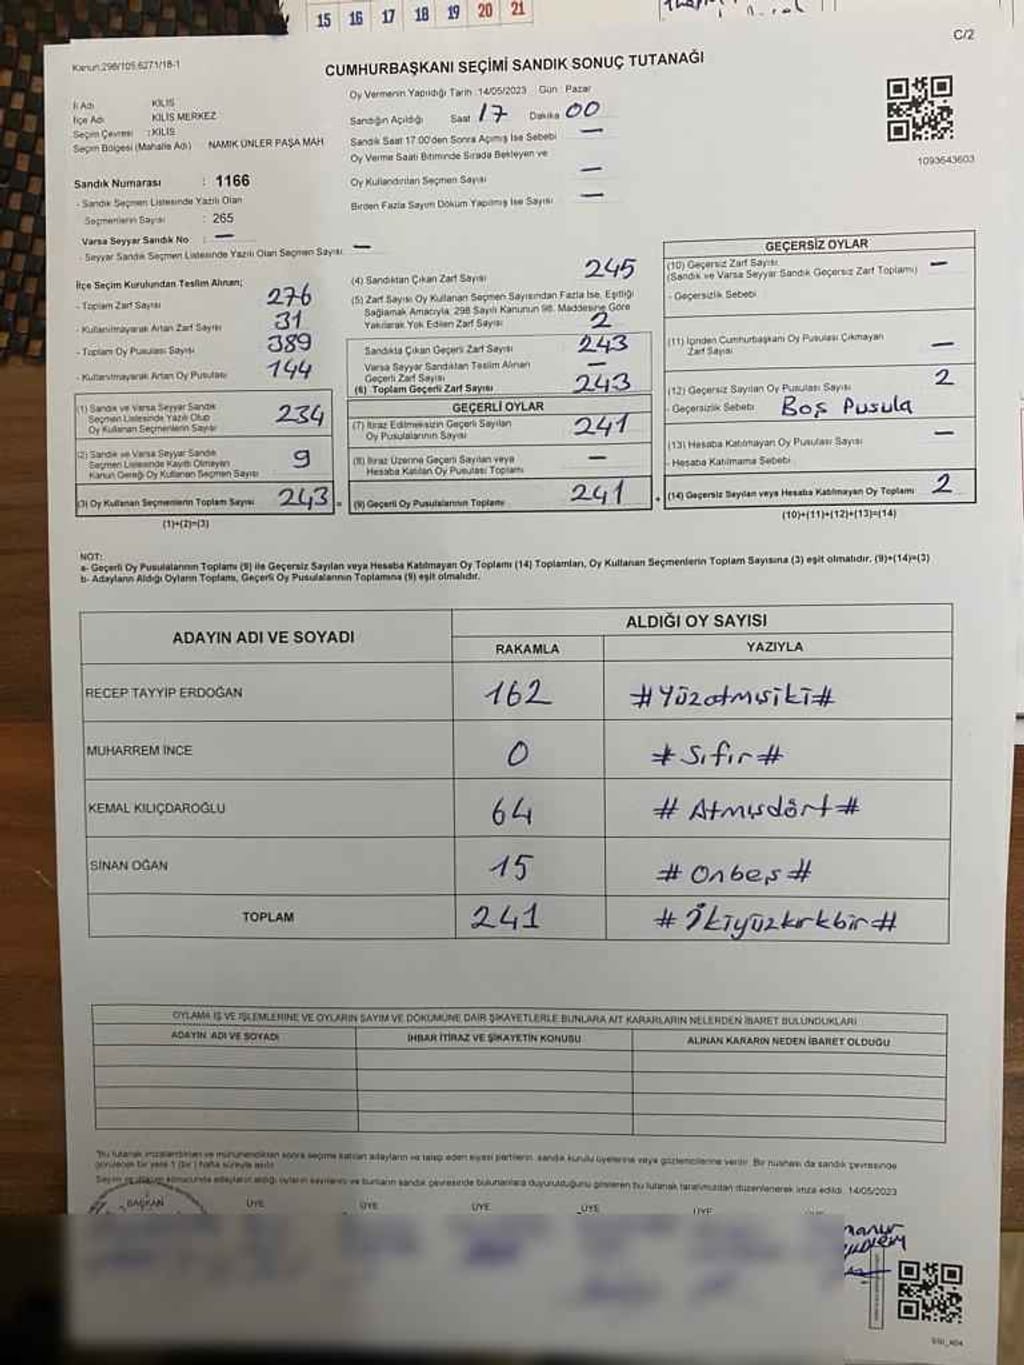 15 16 17 18 19 20 21
C/2
Kanun:298/105.6271/18-1
CUMHURBAŞKANI SEÇİMİ SANDIK SONUÇ TUTANAĞI
İl Adı KİLİS
İlçe Adı KİLİS MERKEZ
Seçim Çevresi : KİLİS
Seçim Bölgesi (Mahalle Adı) NAMIK ÜNLER PAŞA MAH
Oy Vermenin Yapıldığı Tarih :14/05/2023 Gün : Pazar
Sandığın Açıldığı Saat 17 Dakika 00
Sandık Saat 17:00'den Sonra Açımış İse Sebebi —
Oy Verme Saati Bitiminde Sırada Bekleyen ve
Oy Kullandırılan Seçmen Sayısı —
Birden Fazla Sayım Döküm Yapılmış İse Sayısı —
1093643603
Sandık Numarası : 1166
- Sandık Seçmen Listesinde Yazılı Olan
Seçmenlerin Sayısı : 265
Varsa Seyyar Sandık No : —
- Seyyar Sandık Seçmen Listesinde Yazılı Olan Seçmen Sayısı —
İlçe Seçim Kurulundan Teslim Alınan;
- Toplam Zarf Sayısı 276
- Kullanılmayarak Artan Zarf Sayısı 31
- Toplam Oy Pusulası Sayısı 389
- Kullanılmayarak Artan Oy Pusulası 144
(1) Sandık ve Varsa Seyyar Sandık
Seçmen Listesinde Yazılı Olup
Oy Kullanan Seçmenlerin Sayısı 234
(2) Sandık ve Varsa Seyyar Sandık
Seçmen Listesinde Kayıtlı Olmayan
Kanun Gereği Oy Kullanan Seçmen Sayısı 9
(3) Oy Kullanan Seçmenlerin Toplam Sayısı 243 =
(1)+(2)=(3)
(4) Sandıktan Çıkan Zarf Sayısı 245
(5) Zarf Sayısı Oy Kullanan Seçmen Sayısından Fazla İse, Eşitliği
Sağlamak Amacıyla, 298 Sayılı Kanunun 98. Maddesine Göre
Yakılarak Yok Edilen Zarf Sayısı 2
Sandıkta Çıkan Geçerli Zarf Sayısı 243
Varsa Seyyar Sandıktan Teslim Alınan
Geçerli Zarf Sayısı —
(6) Toplam Geçerli Zarf Sayısı 243
GEÇERLİ OYLAR
(7) İtiraz Edilmeksizin Geçerli Sayılan
Oy Pusulalarının Sayısı 241
(8) İtiraz Üzerine Geçerli Sayılan veya
Hesaba Katılan Oy Pusulası Toplamı —
(9) Geçerli Oy Pusulalarının Toplamı 241 +
GEÇERSİZ OYLAR
(10) Geçersiz Zarf Sayısı —
(Sandık ve Varsa Seyyar Sandık Geçersiz Zarf Toplamı)
- Geçersizlik Sebebi
(11) İçinden Cumhurbaşkanı Oy Pusulası Çıkmayan
Zarf Sayısı —
(12) Geçersiz Sayılan Oy Pusulası Sayısı 2
- Geçersizlik Sebebi Boş Pusula
(13) Hesaba Katılmayan Oy Pusulası Sayısı —
- Hesaba Katılmama Sebebi
(14) Geçersiz Sayılan veya Hesaba Katılmayan Oy Toplamı 2
(10)+(11)+(12)+(13)=(14)
NOT:
a- Geçerli Oy Pusulalarının Toplamı (9) ile Geçersiz Sayılan veya Hesaba Katılmayan Oy Toplamı (14) Toplamları, Oy Kullanan Seçmenlerin Toplam Sayısına (3) eşit olmalıdır. (9)+(14)=(3)
b- Adayların Aldığı Oyların Toplamı, Geçerli Oy Pusulalarının Toplamına (9) eşit olmalıdır.
ADAYIN ADI VE SOYADI
ALDIĞI OY SAYISI
RAKAMLA YAZIYLA
RECEP TAYYİP ERDOĞAN 162 #Yüzatmışiki#
MUHARREM İNCE 0 #Sıfır#
KEMAL KILIÇDAROĞLU 64 #Atmışdört#
SİNAN OĞAN 15 #Onbeş#
TOPLAM 241 #İkiyüzkırkbir#
OYLAMA İŞ VE İŞLEMLERİNE VE OYLARIN SAYIM VE DÖKÜMÜNE DAİR ŞİKAYETLERLE BUNLARA AİT KARARLARIN NELERDEN İBARET BULUNDUKLARI
ADAYIN ADI VE SOYADI İHBAR İTİRAZ VE ŞİKAYETİN KONUSU ALINAN KARARIN NEDEN İBARET OLDUĞU
"Bu tutanak imzalandıktan ve mühürlendikten sonra seçime katılan adayların ve talep eden siyasi partilerin, sandık kurulu üyelerine veya gözlemcilerine verilir. Bir nüshası da sandık çevresinde
görülecek bir yere 1 (bir) hafta süreyle asılır.
Sayım ve döküm sonucunda adayların aldığı oyların sayılarını ve bunların sandık çevresinde bulunanlara duyurulduğunu gösteren bu tutanak tarafımızdan düzenlenerek imza edildi. 14/05/2023
BAŞKAN ÜYE ÜYE ÜYE ÜYE ÜYE